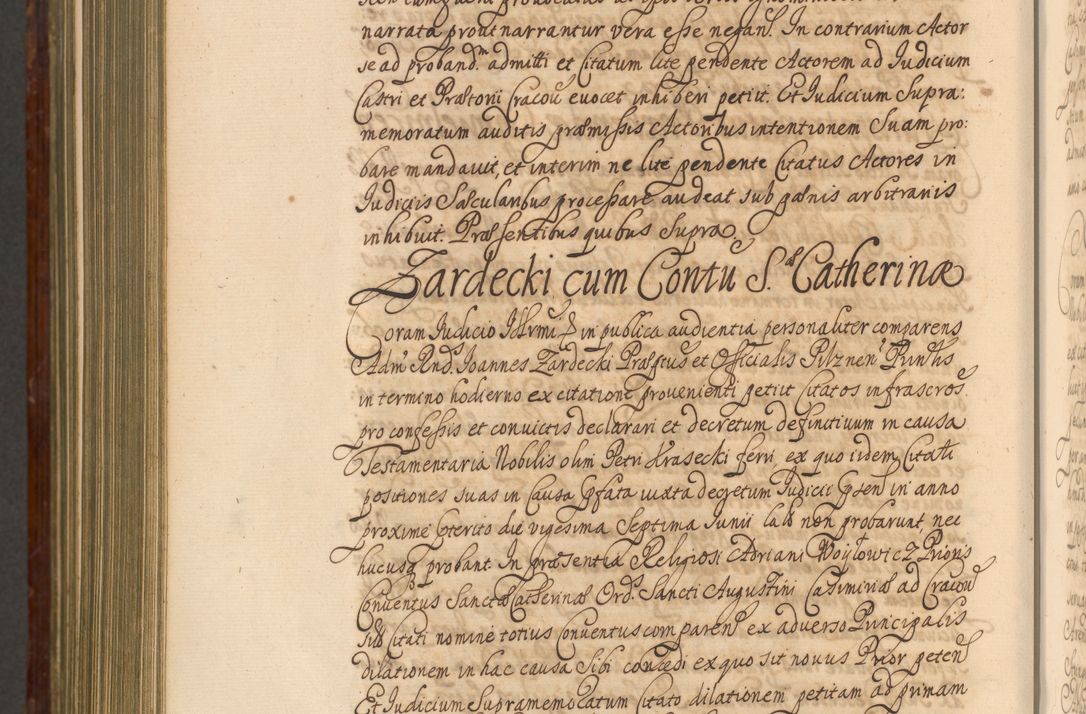 narrata prout narrantur vera esse negan. In contrarium Actor
se ad proband.m admitti et Citatum lite pendente Actorem ad Judicium
Castri et Prætorii Cracou evocet inhiberi petiit. Et Judicium Supra:
memoratum auditis præmissis Actoribus intentionem Suam pro:
bare mandavit, et interim ne lite pendente Citatus Actores in
Judiciis Sæcularibus processare audeat sub pænis arbitrariis
inhibuit. Præsentibus quibus Supra
Zardecki cum Contu S. Catherinæ
Coram Judicio in publica audientia personaliter comparens
Adm. Rnd.s Joannes Zardecki Præptus et Officialis Pilznen
in termino hodierno ex citatione provenienti petiit Citatos infrascros
pro confessis et convictis declarari et decretum definitivum in causa
Testamentaria Nobilis olim Petri Krasecki ferri ex quo iidem Citati
positiones suas in Causa Ipfata iuxta decretum Judicii Ipsen in anno
proxime Pterito die vigesima Septima Junii lab non probarunt nec
hucusq probant In præsentia Religiosi Adriani Woytowicz Prioris
Conventus Sanctæ Catherinæ Ord. Sancti Augustini Casimiriæ ad Cracou
Sub Citati nomine totius Conventus comparen ex adverso Principalis
dilationem in hac causa Sibi concedi ex quo sit novus Prior peten
Et Judicium Supramemoratum Citato dilationem petitam ad primam